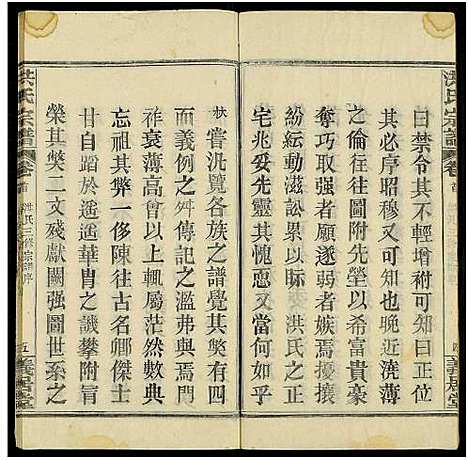 洪氏宗譜
卷首
四
義居堂
曰禁令其不輕增祔可知曰正位
其必序昭穆又可知也晚近澆薄
之倫往往圖附先塋以希富貴豪
奪巧取愚弱者屢遂弱者嫉焉構
訟紛紛動滋訟累洪氏之正
宅兆妥先靈其愧惡又當何如乎
狀嘗汎覽各族之譜覺其獘有四
而義例之舛傳記之濫弗與焉門
祚衰薄高曾以上輒屬茫然數典
忘祖其弊一侈陳往古名卿傑士
甘自居於遥遥華胄之譏攀附旨
榮其獘二文殘獻闕强圖世系之
洪氏宗譜
卷首
洪氏三修宗譜序
五
義居堂